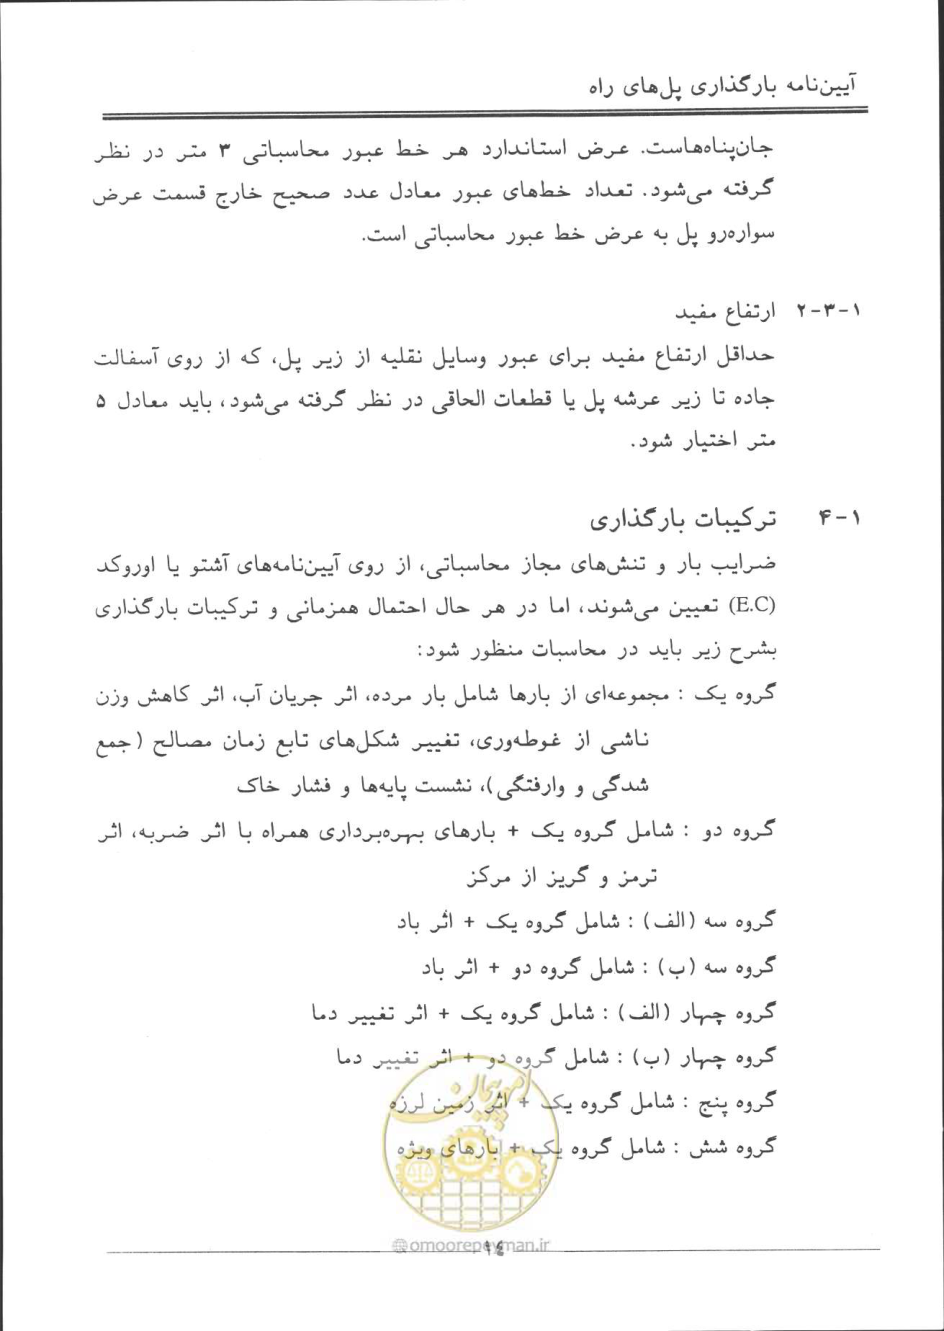 آیین‌نامه بارگذاری پل‌های راه
جان‌پناه‌هاست. عرض استاندارد هر خط عبور محاسباتی ۳ متر در نظر
گرفته می‌شود. تعداد خط‌های عبور معادل عدد صحیح خارج قسمت عرض
سواره‌رو پل به عرض خط عبور محاسباتی است.
۱-۳-۲ ارتفاع مفید
حداقل ارتفاع مفید برای عبور وسایل نقلیه از زیر پل، که از روی آسفالت
جاده تا زیر عرشه پل یا قطعات الحاقی در نظر گرفته می‌شود، باید معادل ۵
متر اختیار شود.
۱-۴ ترکیبات بارگذاری
ضرایب بار و تنش‌های مجاز محاسباتی، از روی آیین‌نامه‌های آشتو یا اوروکد
(E.C) تعیین می‌شوند، اما در هر حال احتمال همزمانی و ترکیبات بارگذاری
بشرح زیر باید در محاسبات منظور شود:
گروه یک : مجموعه‌ای از بارها شامل بار مرده، اثر جریان آب، اثر کاهش وزن
ناشی از غوطه‌وری، تغییر شکل‌های تابع زمان مصالح (جمع
شدگی و وارفتگی)، نشست پایه‌ها و فشار خاک
گروه دو : شامل گروه یک + بارهای بهره‌برداری همراه با اثر ضربه، اثر
ترمز و گریز از مرکز
گروه سه (الف) : شامل گروه یک + اثر باد
گروه سه (ب) : شامل گروه دو + اثر باد
گروه چهار (الف) : شامل گروه یک + اثر تغییر دما
گروه چهار (ب) : شامل گروه دو + اثر تغییر دما
گروه پنج : شامل گروه یک + اثر زمین لرزه
گروه شش : شامل گروه یک + بارهای ویژه
امور پیمان
@omoorepeyman.ir
۱٤